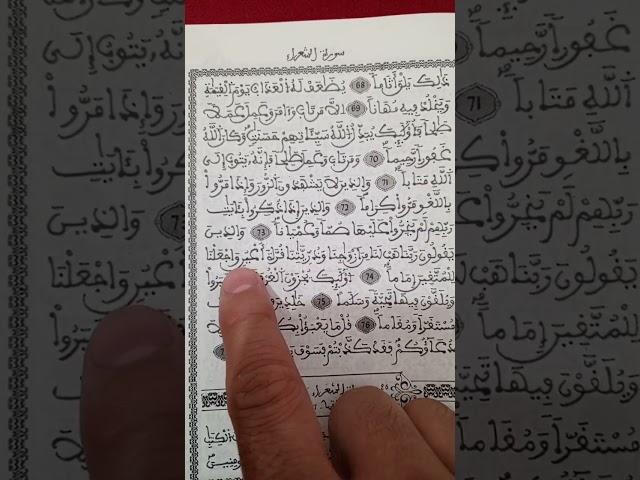 سورة الشعراء
ذَٰلِكَ يَلْقَ أَثَاماً 68 يُضَٰعَفْ لَهُ الْعَذَابُ يَوْمَ الْقِيَٰمَةِ
وَيَخْلُدْ فِيهِ مُهَاناً 69 إِلَّا مَن تَابَ وَءَامَنَ وَعَمِلَ عَمَلًا
صَٰلِحاً فَأُوْلَٰئِكَ يُبَدِّلُ اللَّهُ سَيِّـَٔاتِهِمْ حَسَنَٰتٍ وَكَانَ اللَّهُ
غَفُوراً رَّحِيماً 70 وَمَن تَابَ وَعَمِلَ صَٰلِحاً فَإِنَّهُ يَتُوبُ إِلَى
اللَّهِ مَتَاباً 71 وَالَّذِينَ لَا يَشْهَدُونَ الزُّورَ وَإِذَا مَرُّواْ
بِاللَّغْوِ مَرُّواْ كِرَاماً 72 وَالَّذِينَ إِذَا ذُكِّرُواْ بِـَٔايَٰتِ
رَبِّهِمْ لَمْ يَخِرُّواْ عَلَيْهَا صُمّاً وَعُمْيَاناً 73 وَالَّذِينَ
يَقُولُونَ رَبَّنَا هَبْ لَنَا مِنْ أَزْوَٰجِنَا وَذُرِّيَّٰتِنَا قُرَّةَ أَعْيُنٍ وَاجْعَلْنَا
لِلْمُتَّقِينَ إِمَاماً 74 أُوْلَٰئِكَ يُجْزَوْنَ
وَيُلَقَّوْنَ فِيهَا تَحِيَّةً وَسَلَٰماً 75 خَٰلِدِينَ
مُسْتَقَرّاً وَمُقَاماً 76 قُلْ مَا يَعْبَؤُاْ بِكُمْ
دُعَاؤُكُمْ فَقَدْ كَذَّبْتُمْ فَسَوْفَ